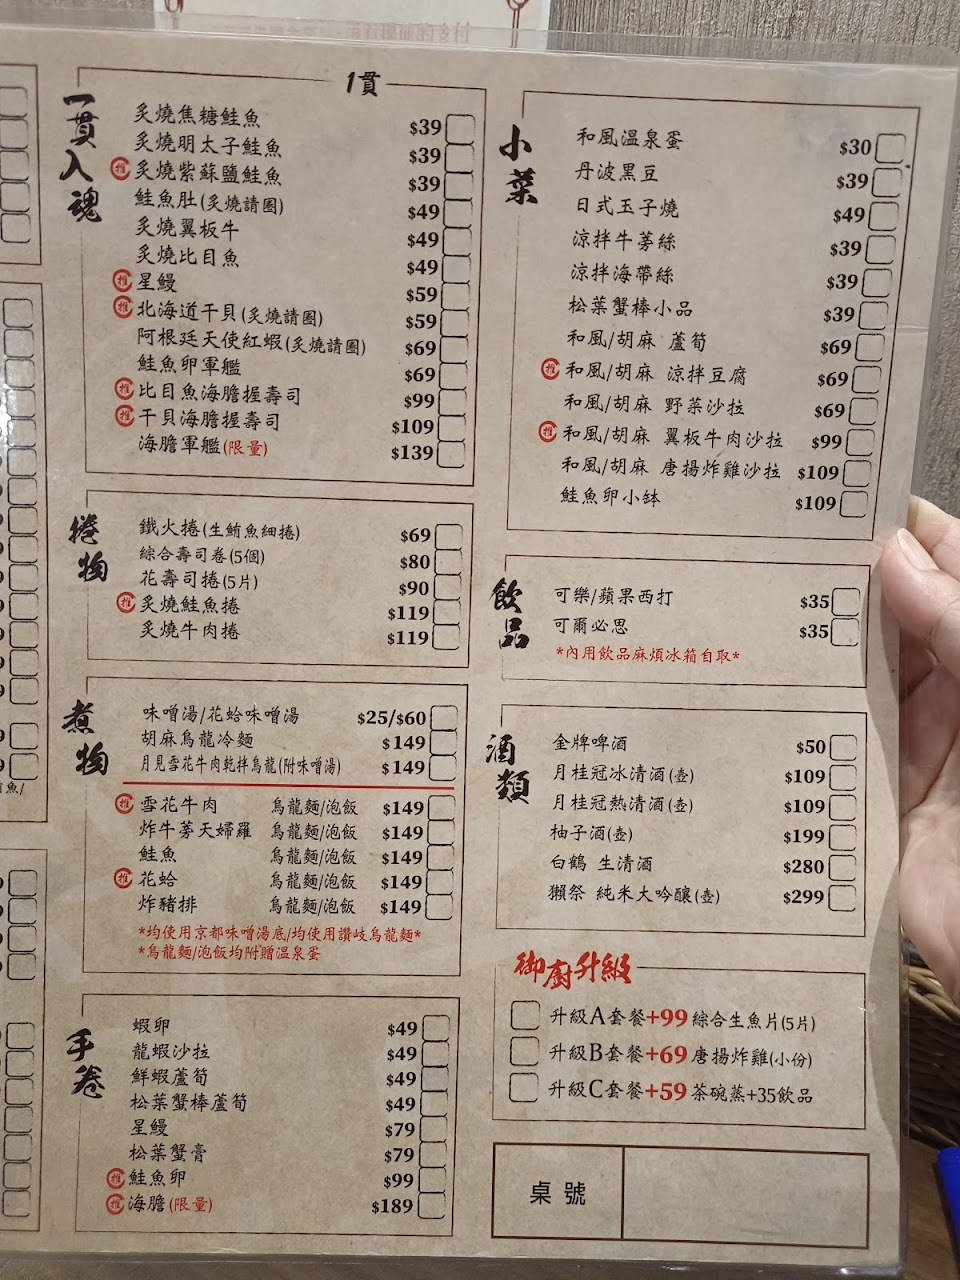 1貫
一貫入魂
炙燒焦糖鮭魚 $39
炙燒明太子鮭魚 $39
推 炙燒紫蘇鹽鮭魚 $39
鮭魚肚(炙燒請圈) $49
炙燒翼板牛 $49
炙燒比目魚 $49
推 星鰻 $59
推 北海道干貝(炙燒請圈) $59
阿根廷天使紅蝦(炙燒請圈) $69
鮭魚卵軍艦 $69
推 比目魚海膽握壽司 $99
推 干貝海膽握壽司 $109
海膽軍艦(限量) $139
捲物
鐵火捲(生鮪魚細捲) $69
綜合壽司卷(5個) $80
花壽司捲(5片) $90
推 炙燒鮭魚捲 $119
炙燒牛肉捲 $119
煮物
味噌湯/花蛤味噌湯 $25/$60
胡麻烏龍冷麵 $149
月見雪花牛肉乾拌烏龍(附味噌湯) $149
推 雪花牛肉 烏龍麵/泡飯 $149
炸牛蒡天婦羅 烏龍麵/泡飯 $149
鮭魚 烏龍麵/泡飯 $149
推 花蛤 烏龍麵/泡飯 $149
炸豬排 烏龍麵/泡飯 $149
*均使用京都味噌湯底/均使用讚岐烏龍麵*
*烏龍麵/泡飯均附贈溫泉蛋
手卷
蝦卵 $49
龍蝦沙拉 $49
鮮蝦蘆筍 $49
松葉蟹棒蘆筍 $49
星鰻 $79
松葉蟹膏 $79
推 鮭魚卵 $99
推 海膽(限量) $189
小菜
和風溫泉蛋 $30
丹波黑豆 $39
日式玉子燒 $49
涼拌牛蒡絲 $39
涼拌海帶絲 $39
松葉蟹棒小品 $39
和風/胡麻 蘆筍 $69
推 和風/胡麻 涼拌豆腐 $69
和風/胡麻 野菜沙拉 $69
推 和風/胡麻 翼板牛肉沙拉 $99
和風/胡麻 唐揚炸雞沙拉 $109
鮭魚卵小缽 $109
飲品
可樂/蘋果西打 $35
可爾必思 $35
*內用飲品麻煩冰箱自取*
酒類
金牌啤酒 $50
月桂冠冰清酒(壺) $109
月桂冠熱清酒(壺) $109
柚子酒(壺) $199
白鶴 生清酒 $280
獺祭 純米大吟釀(壺) $299
御廚升級
升級A套餐+99 綜合生魚片(5片)
升級B套餐+69 唐揚炸雞(小份)
升級C套餐+59 茶碗蒸+35飲品
桌號